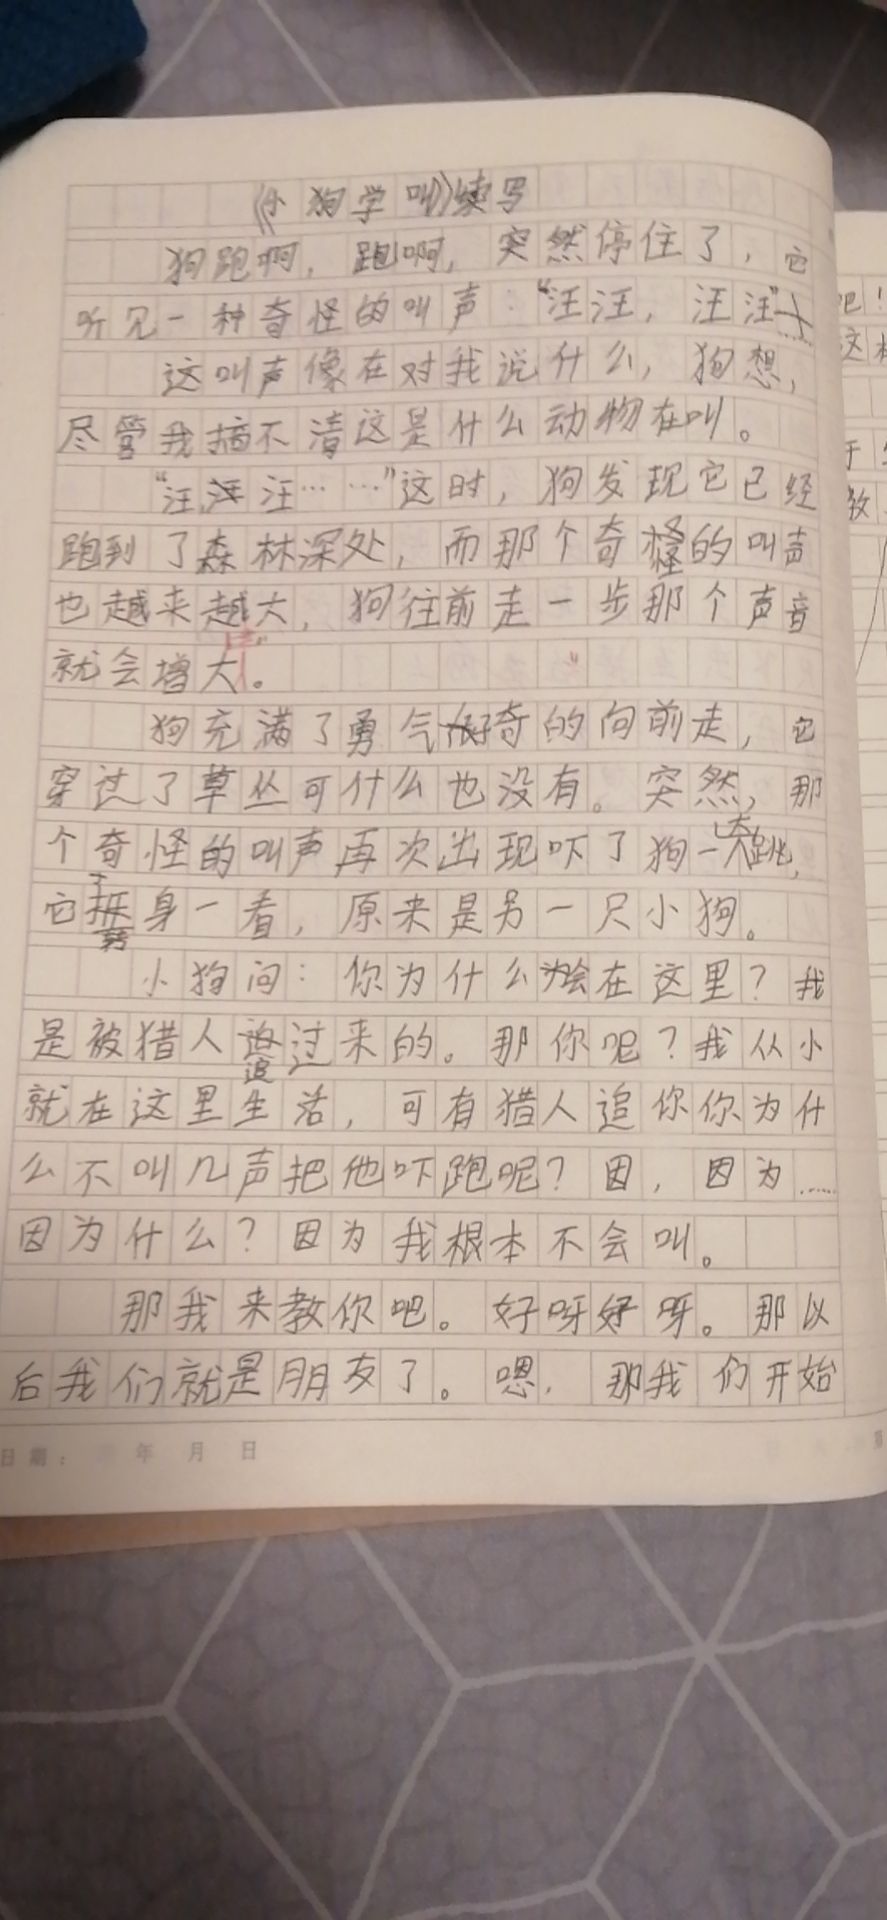 《小狗学叫》续写
狗跑啊，跑啊，突然停住了，它
听见一种奇怪的叫声：“汪汪，汪汪”
这叫声像在对我说什么，狗想，
尽管我搞不清这是什么动物在叫。
“汪汪汪……”这时，狗发现它已经
跑到了森林深处，而那个奇怪的叫声
也越来越大，狗往前走一步那个声音
就会增大。
狗充满了勇气好奇的向前走，它
穿过了草丛可什么也没有。突然，那
个奇怪的叫声再次出现吓了狗一大跳，
它转身一看，原来是另一只小狗。
小狗问：你为什么会在这里？我
是被猎人追过来的。那你呢？我从小
就在这里生活，可有猎人追你你为什
么不叫几声把他吓跑呢？因，因为……
因为什么？因为我根本不会叫。
那我来教你吧。好呀好呀。那以
后我们就是朋友了。嗯，那我们开始
日期： 年 月 日
吧！